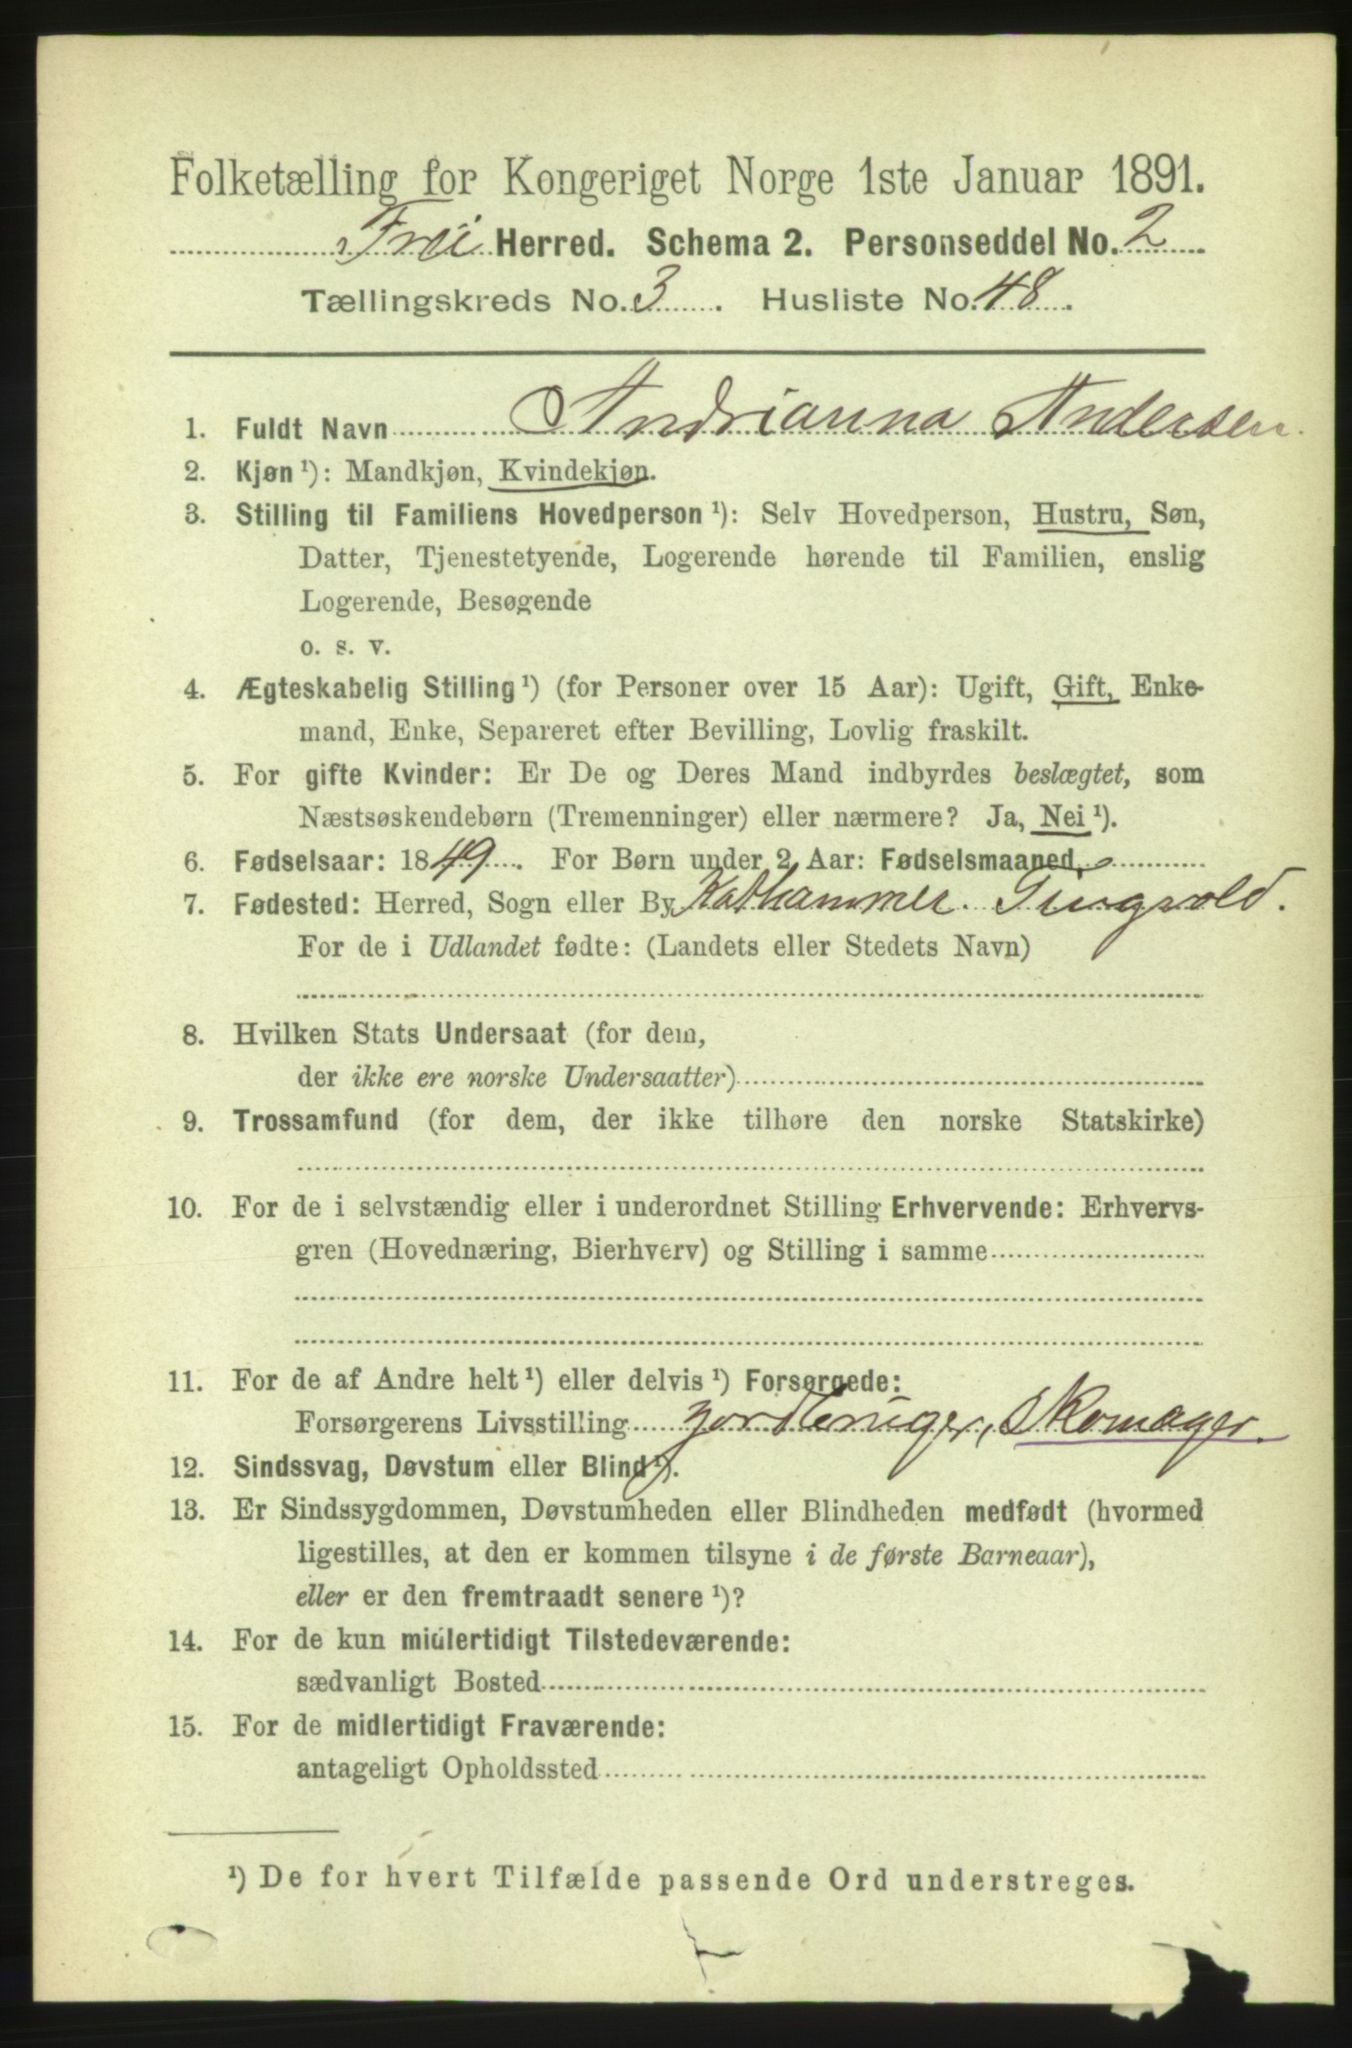 Folketælling for Kongeriget Norge 1ste Januar 1891.
Frei Herred. Schema 2. Personseddel No. 2
Tællingskreds No. 3. Husliste No. 48.
1. Fuldt Navn Andrianna Andersen.
2. Kjøn ¹): Mandkjøn, Kvindekjøn.
3. Stilling til Familiens Hovedperson ¹): Selv Hovedperson, Hustru, Søn,
Datter, Tjenestetyende, Logerende hørende til Familien, enslig
Logerende, Besøgende
o. s. v.
4. Ægteskabelig Stilling ¹) (for Personer over 15 Aar): Ugift, Gift, Enke-
mand, Enke, Separeret efter Bevilling, Lovlig fraskilt.
5. For gifte Kvinder: Er De og Deres Mand indbyrdes beslægtet, som
Næstsøskendebørn (Tremenninger) eller nærmere? Ja, Nei ¹).
6. Fødselsaar: 1849. For Børn under 2 Aar: Fødselsmaaned
7. Fødested: Herred, Sogn eller By Kathammer. Tingvold.
For de i Udlandet fødte: (Landets eller Stedets Navn)
8. Hvilken Stats Undersaat (for dem,
der ikke ere norske Undersaatter)
9. Trossamfund (for dem, der ikke tilhøre den norske Statskirke)
10. For de i selvstændig eller i underordnet Stilling Erhvervende: Erhvervs-
gren (Hovednæring, Bierhverv) og Stilling i samme
11. For de af Andre helt ¹) eller delvis ¹) Forsørgede:
Forsørgerens Livsstilling jordbruger, Skomager.
12. Sindssvag, Døvstum eller Blind ¹).
13. Er Sindssygdommen, Døvstumheden eller Blindheden medfødt (hvormed
ligestilles, at den er kommen tilsyne i de første Barneaar),
eller er den fremtraadt senere ¹)?
14. For de kun midlertidigt Tilstedeværende:
sædvanligt Bosted
15. For de midlertidigt Fraværende:
antageligt Opholdssted
¹) De for hvert Tilfælde passende Ord understreges.